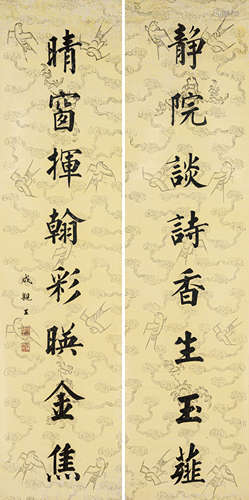 静院談詩香生玉薤
晴窗揮翰彩暎金焦
成親王